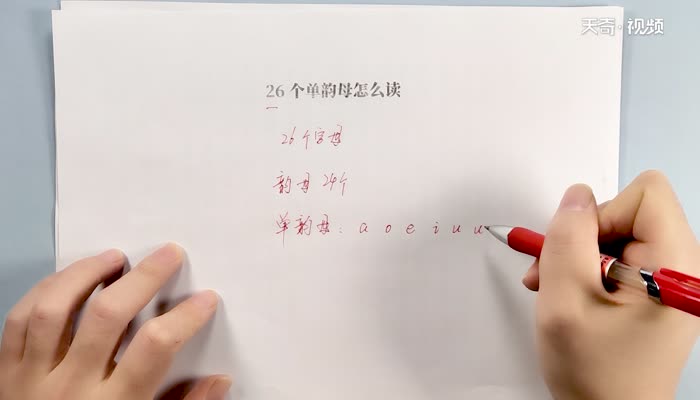 天奇·视频
26 个单韵母怎么读
26个字母
韵母 24个
单韵母: a o e i u u